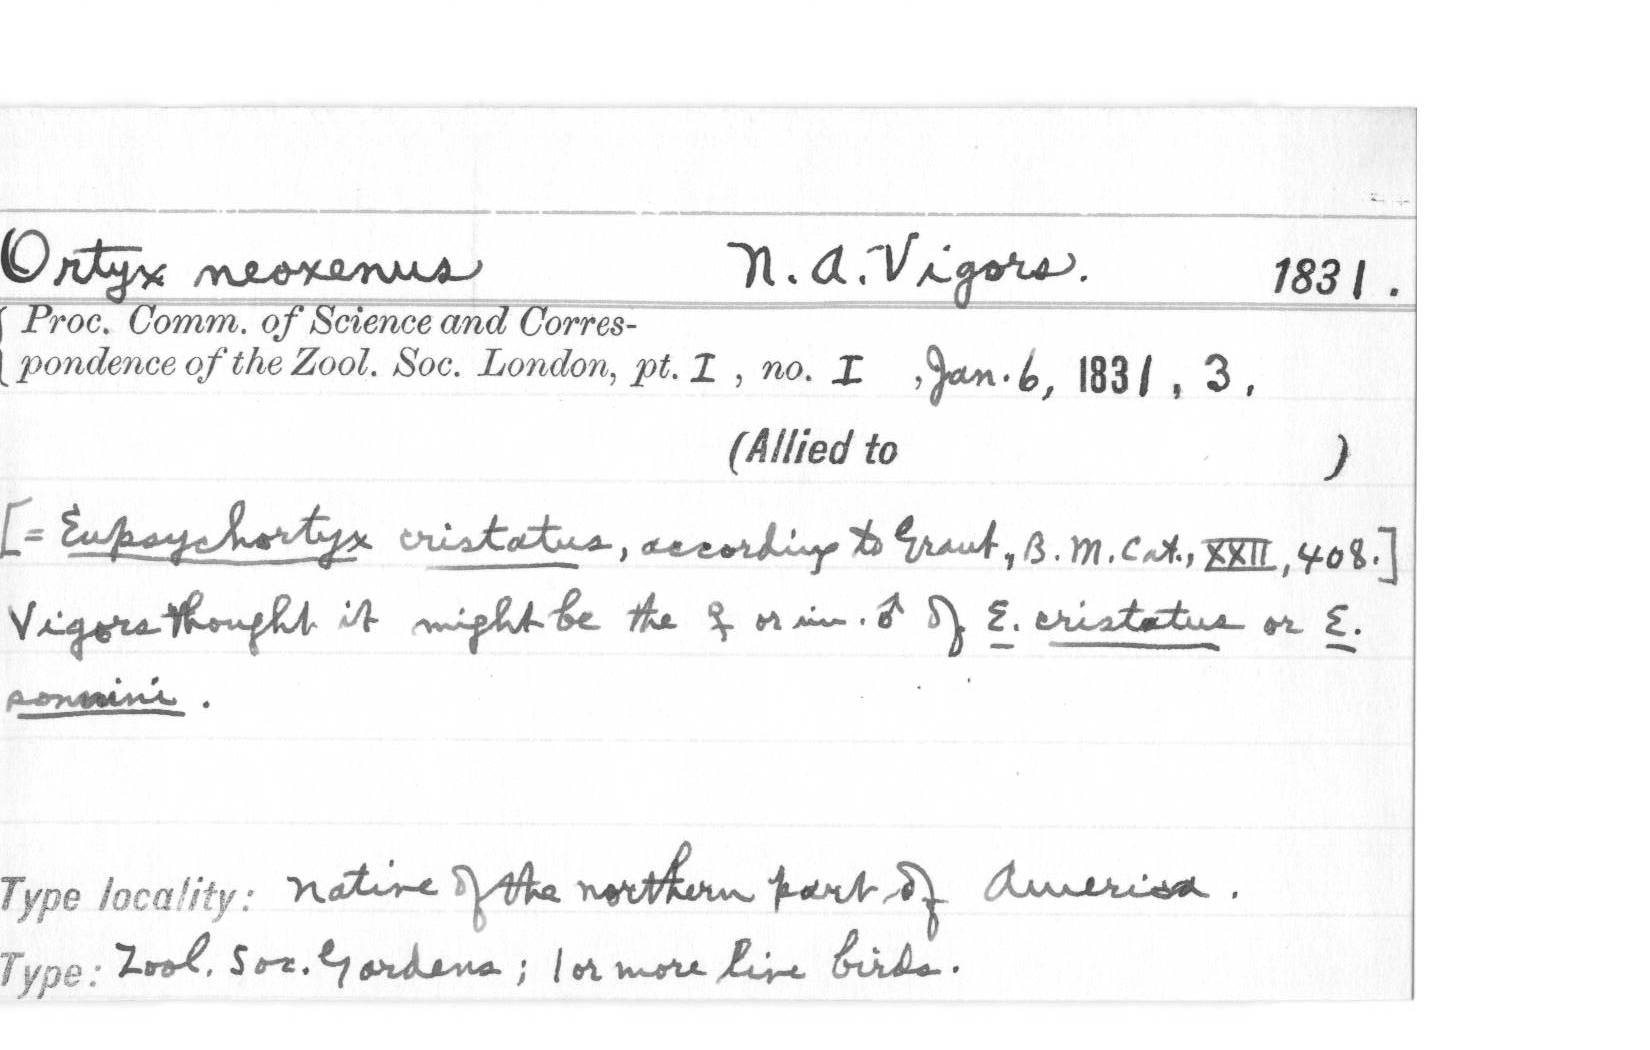 Ortyx neoxenus N. A. Vigors. 1831.
{ Proc. Comm. of Science and Corres-
pondence of the Zool. Soc. London, pt. I, no. I, Jan. 6, 1831, 3.
(Allied to )
[= Eupsychortyx cristatus, according to Grant, B. M. Cat., XXII, 408.]
Vigors thought it might be the ♀ or im. ♂ of E. cristatus or E.
sonnini.
Type locality: Native of the northern part of America.
Type: Zool. Soc. Gardens; 1 or more live birds.